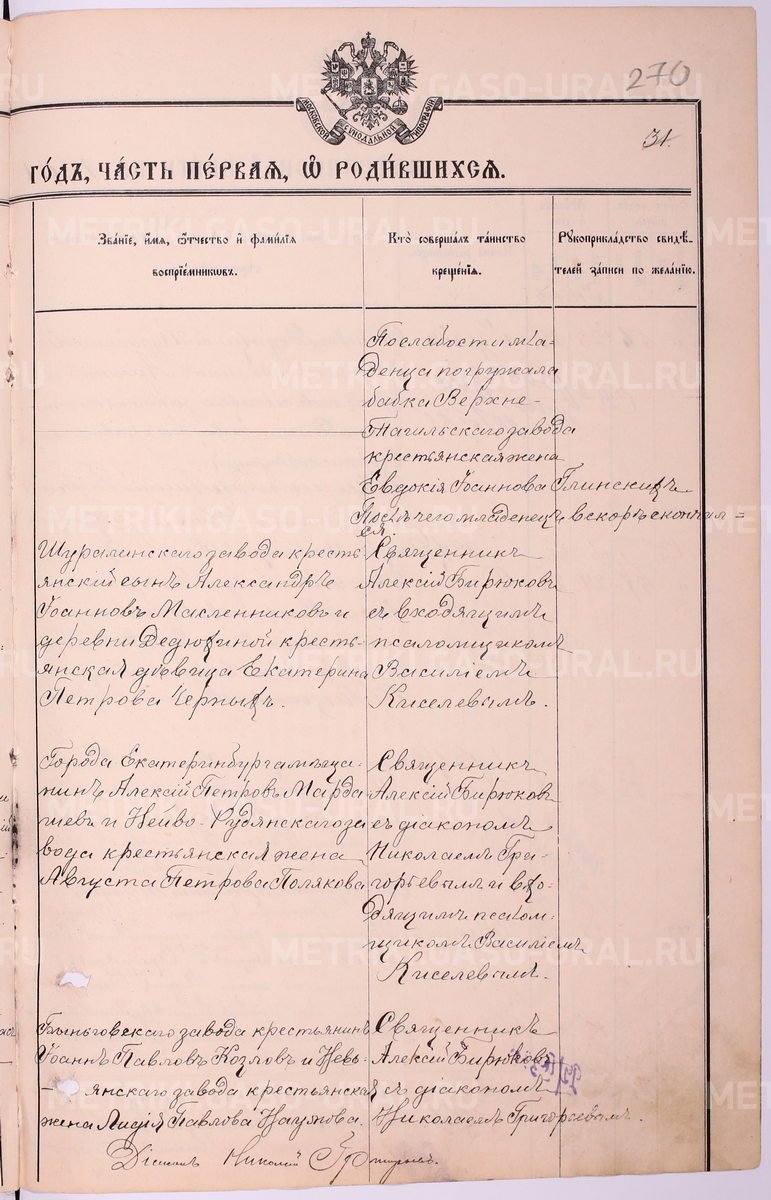 270
МОСКОВСКОЙ СѴНОДАЛЬНОЙ ТИПОГРАФІИ
31.
ГО́ДЪ, ЧА́СТЬ ПЕ́РВАЯ, Ѽ РОДИ́ВШИХСЯ.
Зва́нїе, и҆́мя, ѻ҆́тчество и҆ фами́лїѧ
воспрїе́мникѡвъ.
Кто̀ соверша́лъ та́инство
креще́нїѧ.
Рꙋкоприкла́дство свидѣ́-
телей за́писи по жела́нїю.
По слабости мла-
денца погружала
бабка Верхне-
Тагильскаго завода
крестьянская жена
Евдокія Іоаннова Глинскихъ
После чего младенецъ вскорѣ скончал=
ся.
Шуралинскаго завода кресть
янскій сынъ Александръ
Іоанновъ Масленниковъ и
деревни Дедюхиной кресть-
янская дѣвица Екатерина
Петрова Черныхъ.
Священникъ
Алексій Бирюковъ
съ входящимъ
псаломщикомъ
Василіемъ
Киселевымъ.
Города Екатеринбурга мѣща-
нинъ Алексій Петровъ Марда
шевъ и Нейво-Рудянскаго за
вода крестьянская жена
Августа Петрова Полякова
Священникъ
Алексій Бирюковъ
съ діакономъ
Николаемъ Гри-
горьевымъ и вхо-
дящимъ псалом-
щикомъ Василіемъ
Киселевымъ.
Быньговскаго завода крестьянинъ
Іоаннъ Павловъ Козловъ и Невь-
янскаго завода крестьянская
жена Лидія Павлова Наумова.
Священникъ
Алексій Бирюковъ
съ діакономъ
Николаемъ Григорьевымъ.
Діаконъ Николай Григорьевъ.
METRIKI.GASO-URAL.RU